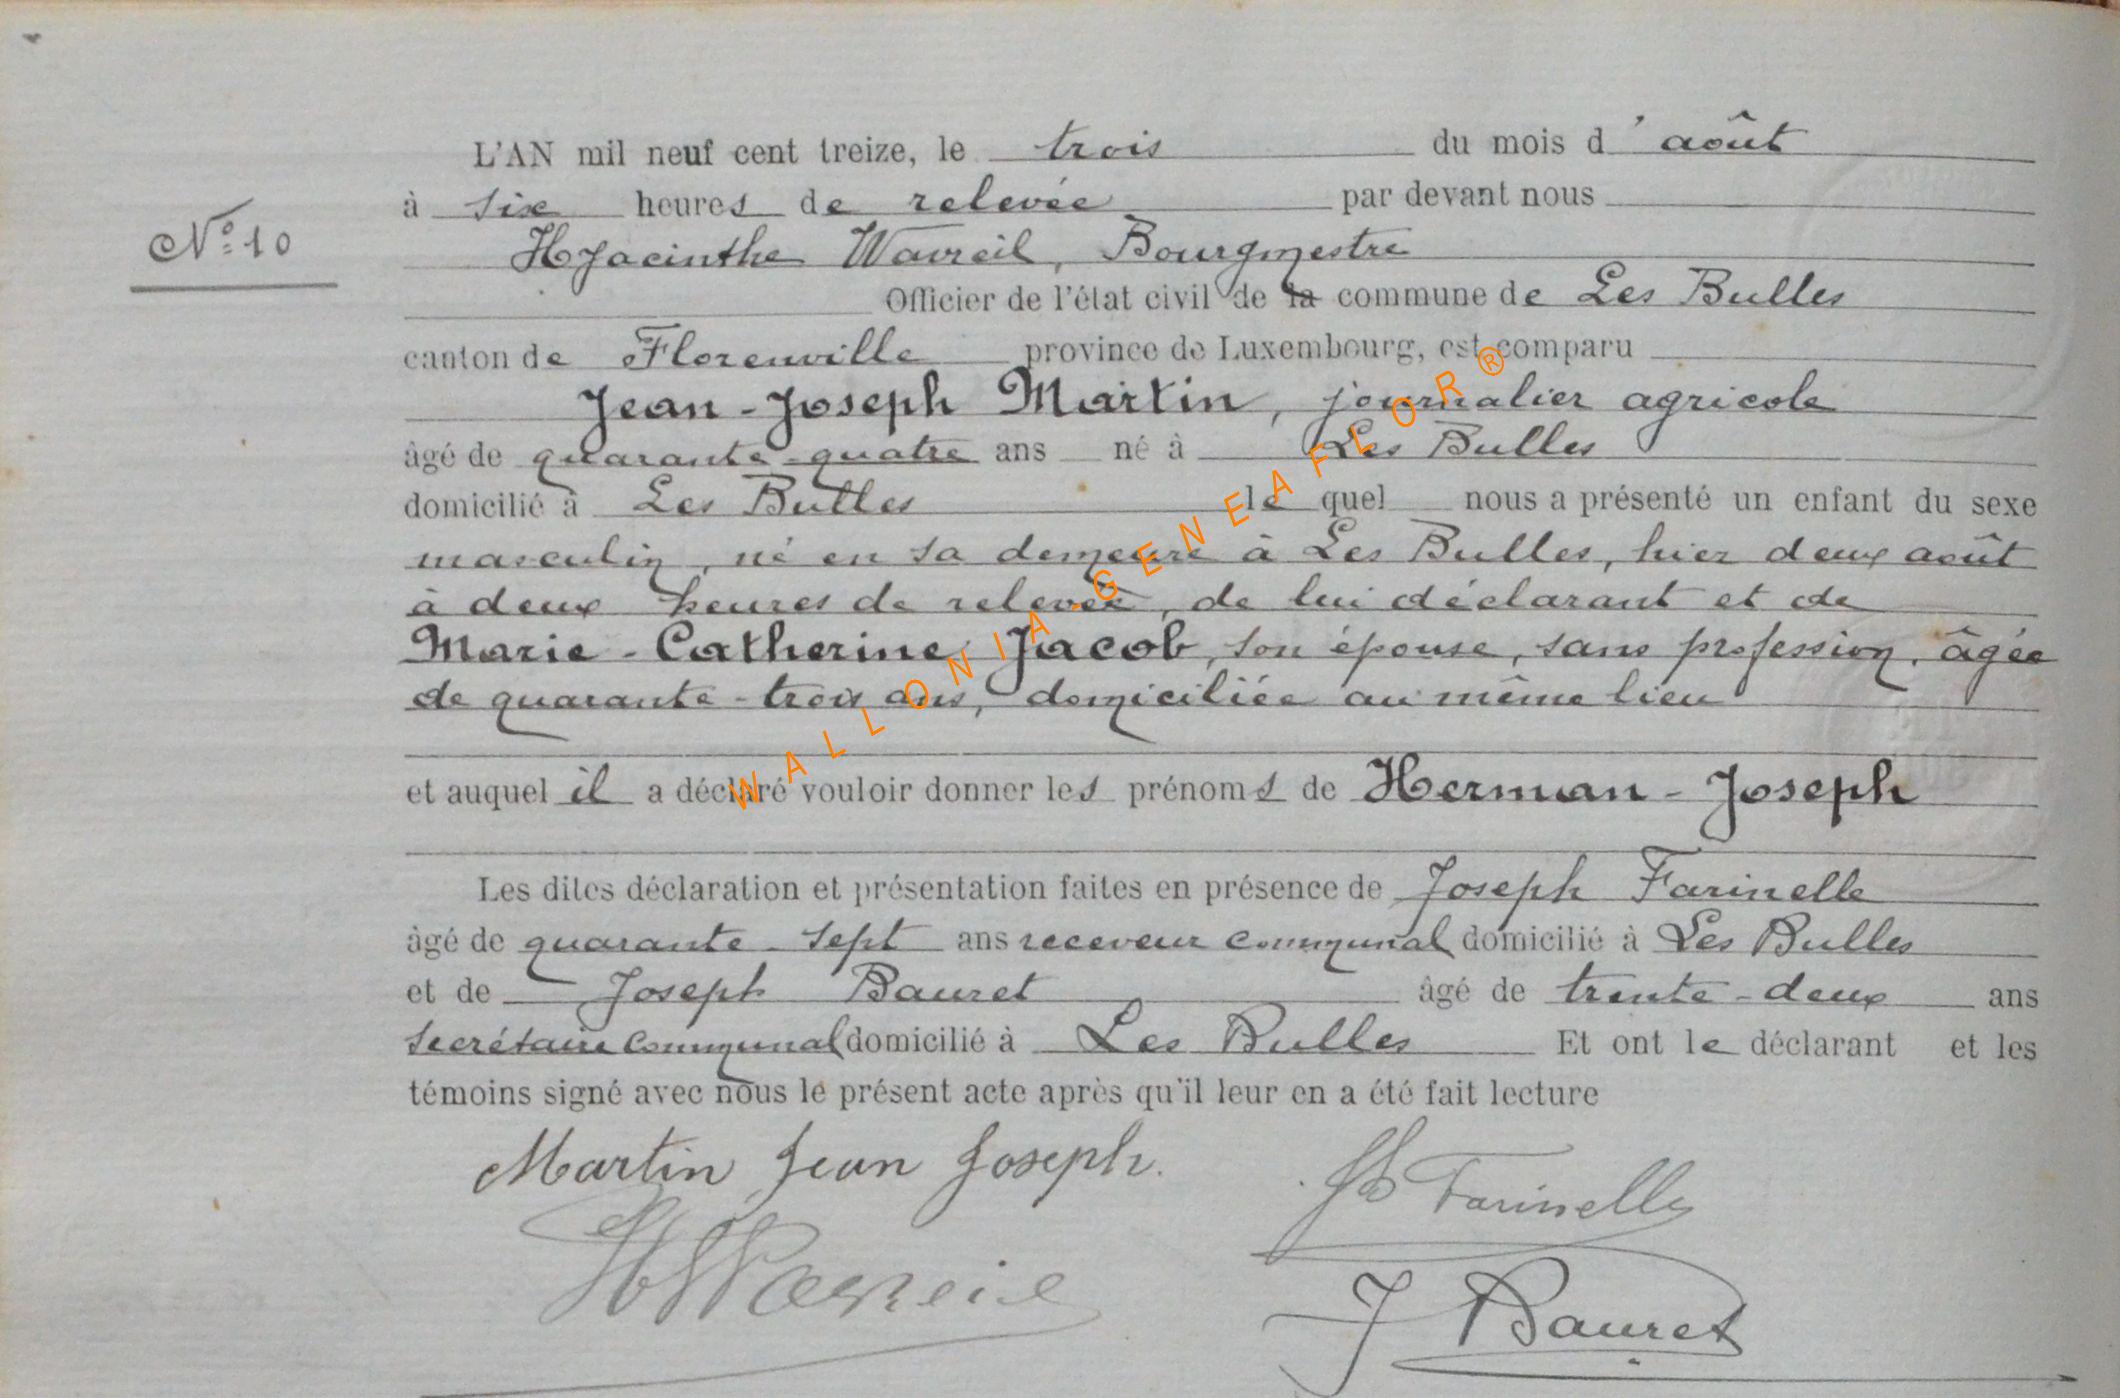 L'AN mil neuf cent treize, le trois du mois d'août
à six heures de relevée par devant nous
Nº 10
Hyacinthe Wavreil, Bourgmestre
Officier de l'état civil de la commune de Les Bulles
canton de Florenville province de Luxembourg, est comparu
Jean-Joseph Martin, journalier agricole
âgé de quarante-quatre ans né à Les Bulles
domicilié à Les Bulles lequel nous a présenté un enfant du sexe
masculin, né en sa demeure à Les Bulles, hier deux août
à deux heures de relevée, de lui déclarant et de
Marie-Catherine Jacob, son épouse, sans profession, âgée
de quarante-trois ans, domiciliée au même lieu
et auquel il a déclaré vouloir donner les prénoms de Herman-Joseph
Les dites déclaration et présentation faites en présence de Joseph Farinelle
âgé de quarante-sept ans receveur communal domicilié à Les Bulles
et de Joseph Bauret âgé de trente-deux ans
secrétaire communal domicilié à Les Bulles Et ont le déclarant et les
témoins signé avec nous le présent acte après qu'il leur en a été fait lecture
Martin Jean Joseph.
Farinelle
H Wavreil
J Bauret
WALLONIA GENEAFLOR®